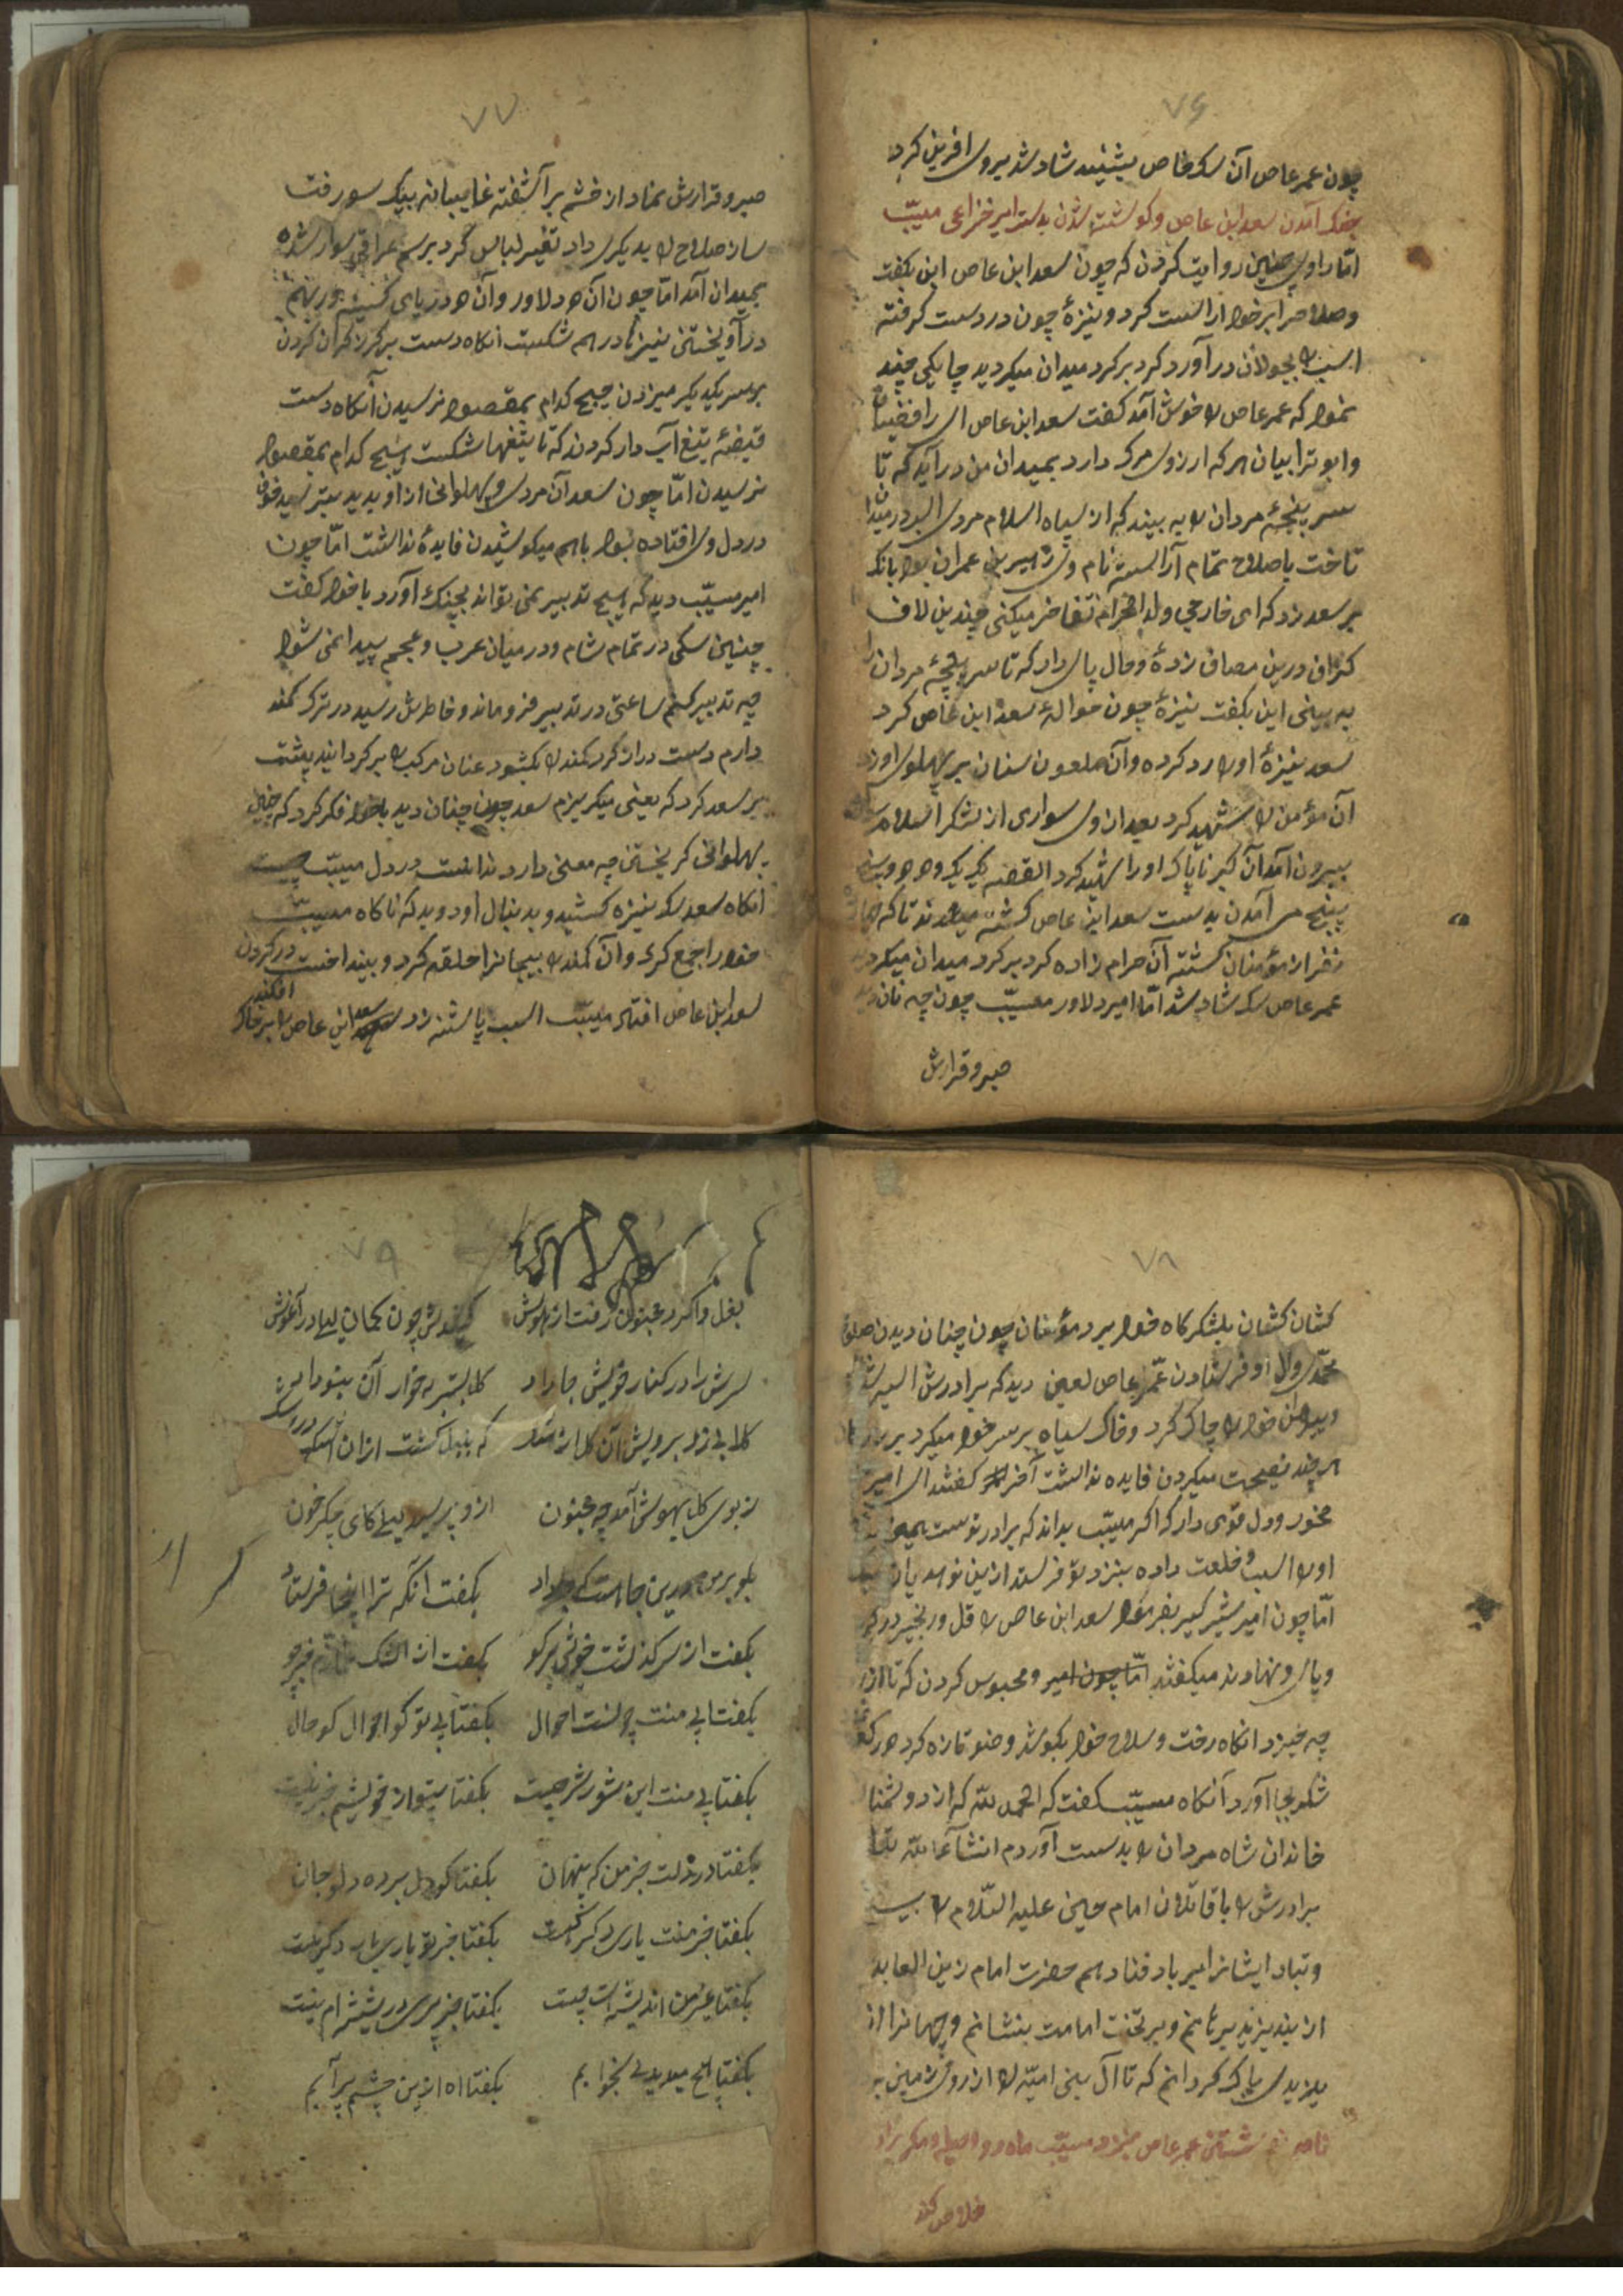 ۷۶
چون عمر عاص آن سک خاص بشنید شاد شد بروی افرین کرد
بجنک آمدن سعد ابن عاص و کوشته شدن بدست امیر خزاعی مسیّب
امّا راوی چنین روایت کردن که چون سعد ابن عاص این بکفت
و صلاح را بر خود اراست کرد و نیزهٔ چون در دست کرفته
اسب را بجولان در آورد کرد بر کرد میدان میکردید چابکی چند
نمود که عمر عاص را خوش آمد کفت سعد ابن عاص ای رافضیان
و ابوترابیان هر که ارزوی مرک دارد بمیدان من در آید که تا
سر پنجهٔ مردان را به بیند که از سپاه اسلام مردی
تاخت با صلاح تمام آراسته نام وی زهیر بن عمران بود بانک
بر سعد زد که ای خارجی ولد الحرام تفاخر میکنی چندین لاف
کزاف درین مصاف زدهٔ و حال پای دار که تا سر پنجهٔ مردان را
به بینی این بکفت نیزهٔ چون حوالهٔ سعد ابن عاص کرد
سعد نیزهٔ او را رد کرده و آن ملعون سنان بر پهلوی او زد
آن مؤمن را شهید کرد بعد از وی سواری از لشکر اسلام
بیرون آمد آن کبر ناپاک او را شهید کرد القصه یک یک و دو دو
پنج می آمدن بدست سعد ابن عاص کشته میشدند تا که
نفر از مؤمنان کشته آن حرام زاده کرد بر کرد میدان میکردید
عمر عاص سک شاد شد امّا امیر دلاور مسیّب چون چنان دید
صبر و قرارش
۷۷
صبر و قرارش نماد از خشم بر آشفته غایبانه بیک سو رفت
ساز صلاح را بدیکری داد تغیر لباس کرد بر سم عراقی سوار شده
بمیدان آمد امّا چون آن دو دلاور و آن دو دریای کینه ور بهم
در آویختن نیزها در هم شکست انکاه دست بر کرز کران کردن
بر سر یکدیکر میزدن هیچ کدام بمقصود نرسیدن آنکاه دست
قبضهٔ تیغ آب دار کردند که تا تیغها شکست هیچ کدام بمقصود
نرسیدن امّا چون سعد آن مردی و پهلوانی از او بدید بترسید خوف
در دل وی افتاده بود باهم میکوشیدن فایدهٔ نداشت امّا چون
امیر مسیّب دید که هیچ تدبیر نمی تواند بچنک آورد با خود کفت
چنین سکی در تمام شام و در میان عرب و عجم پیدا نمی شود
چه تدبیر کنم ساعتی در تدبیر فرو ماند و خاطرش رسید در ترک کمند
دارم دست دراز کرد کمند را بکشود عنان مرکب را بر کردانید پشت
بر سعد کرد که یعنی میکریزم سعد چون چنان دید با خود فکر کرد که چنین
پهلوانی کریختن چه معنی دارد ندانست در دل مسیّب چیست
انکاه سعد سک نیزه کشید و بدنبال او دوید که ناکاه مسیّب
خود را جمع کرد و آن کمند را بیجانرا حلقه کرد و بینداخت در کردن
سعد ابن عاص افتاد مسیّب اسب پاشنه زد سعد ابن عاص را بر خاک
افکند
۷۸
کشان کشان بلشکرکاه خود برد مؤمنان چون چنان دیدن صلوٰة
محمّد و ال او فرستادن عمر عاص لعین دید که برادرش اسیر شد
و پیراهن خود را چاک کرد و خاک سیاه بر سر خود میکرد
هر چند نصیحت میکردن فایده نداشت آخر کفتند ای امیر
مخور و دل قوی دار که اکر مسیّب بداند که برادر توست
او را اسب و خلعت داده بنزد تو فرستد ازین نوع
امّا چون امیر شیر کیر بفرمود سعد ابن عاص را قل و زنجیر در کردن
و پای و نهادند میکفتند امّا چون امیر و محبوس کردن که تا از
چه خیزد انکاه رخت و سلاح خود بکوشد وضو تازه کرد دو رکعت
شکر بجا آورد آنکاه مسیّب کفت که الحمد لله که از دو دشمنان
خاندان شاه مردان را بدست آوردم انشآءالله
برادرش را با قاتلان امام حسین علیه السّلام را
و تباه ایشانرا بر باد فنا دهم حضرت امام زین العابدین
از بند یزید برهانم و بر تخت امامت بنشانم و جهانرا از
یلزیدی پاک کردانم که تا آل بنی امیّه را از روی زمین
نامه نوشتن عمر عاص بنزد مسیّب
خلاص کند
۷۹
بغل وا کرد مجنون رفت از هوش کشیدش چون کمان لیلی در آغوش
سرش را در کنار خویش جا داد
ز بوی کل بهوش آمد چه مجنون ازو پرسید لیلی کای جکر خون
بکو برمن درین جا بکفت انکه ترا اینجا فرستاد
بکفت از سرکذشت خوش بر کو بکفت از اشک
بکفتا بی منت چونست احوال بکفتا بی تو کو احوال کو حال
بکفتا بی منت این شور شر چیست بکفتا بیتو از خویشم خبر نیست
بکفتا در دلت جز من که پنهان بکفتا کو دل برده دل و جان
بکفتا جز منت یاری دکر کیست بکفتا جز تو یاری یار دکر نیست
بکفتا غیر من اندیشه ات چیست
بکفتا هیچ میدیدی بخوابم بکفتا اه ازین چشم پر آبم